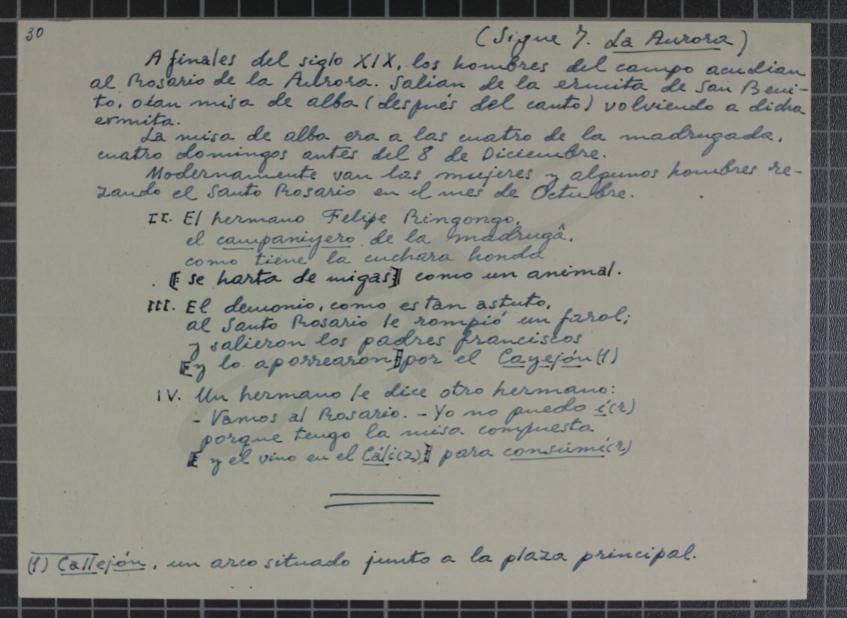 30
(Sigue 7. La Aurora)
A finales del siglo XIX, los hombres del campo acudian
al Rosario de la Aurora. Salian de la ermita de San Beni-
to, oían misa de alba (después del canto) volviendo a dicha
ermita.
La misa de alba era a las cuatro de la madrugada,
cuatro domingos antes del 8 de Diciembre.
Modernamente van las mujeres y algunos hombres re-
zando el Santo Rosario en el mes de Octubre.
II. El hermano Felipe Ringongo,
el campaniyero de la madrugâ,
como tiene la cuchara honda
[se harta de migas] como un animal.
III. El demonio, como es tan astuto,
al Santo Rosario le rompió un farol;
y salieron los padres franciscos
[y lo aporrearon] por el Cayejón (1)
IV. Un hermano le dice otro hermano:
- Vamos al Rosario. - Yo no puedo í(r)
porque tengo la misa compuesta
[y el vino en el Cáli(z)] para consumí(r)
(1) Callejón, un arco situado junto a la plaza principal.